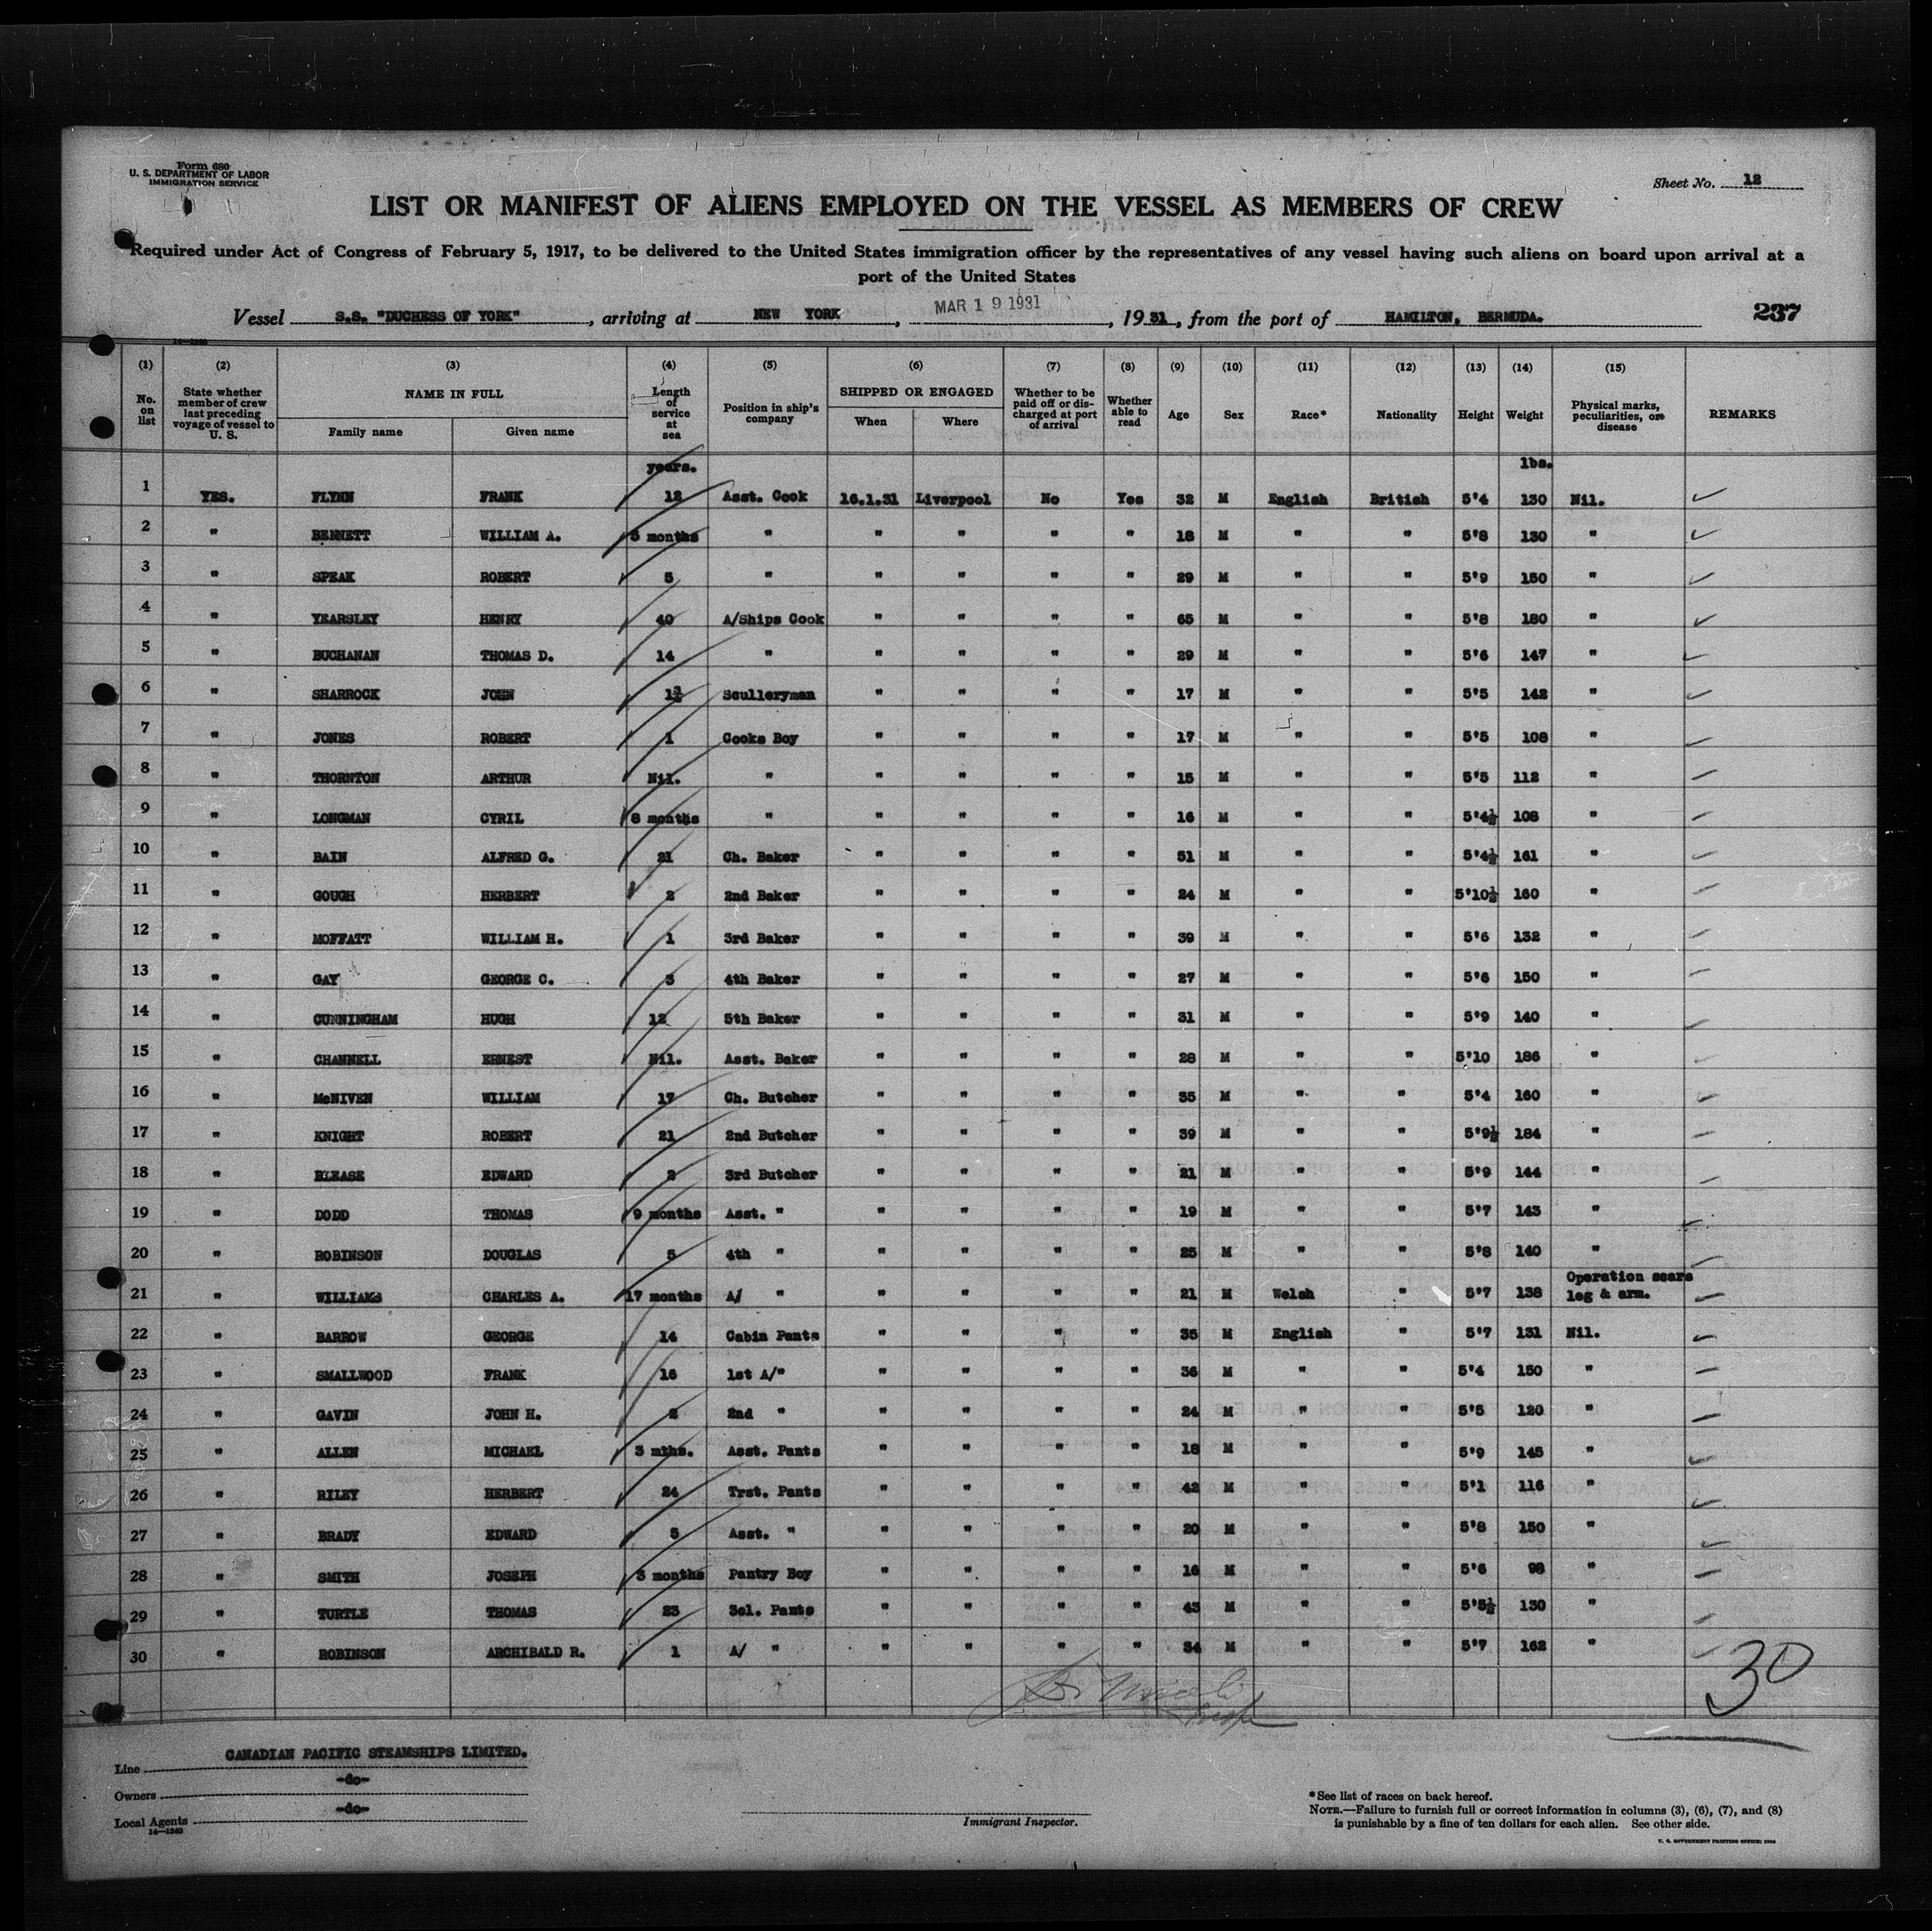 Form 680
U. S. DEPARTMENT OF LABOR
IMMIGRATION SERVICE
Sheet No. 12
LIST OR MANIFEST OF ALIENS EMPLOYED ON THE VESSEL AS MEMBERS OF CREW
Required under Act of Congress of February 5, 1917, to be delivered to the United States immigration officer by the representatives of any vessel having such aliens on board upon arrival at a
port of the United States
Vessel S.S. "DUCHESS OF YORK", arriving at NEW YORK, MAR 19 1931, 1931, from the port of HAMILTON, BERMUDA. 237
14—1240
(1) (2) (3) (4) (5) (6) (7) (8) (9) (10) (11) (12) (13) (14) (15)
No. on list State whether member of crew last preceding voyage of vessel to U. S. NAME IN FULL Family name Given name Length of service at sea Position in ship's company SHIPPED OR ENGAGED When Where Whether to be paid off or discharged at port of arrival Whether able to read Age Sex Race* Nationality Height Weight Physical marks, peculiarities, or disease REMARKS
years. lbs.
1 YES. FLYNN FRANK 12 Asst. Cook 16.1.31 Liverpool No Yes 32 M English British 5'4 130 Nil.
2 " BENNETT WILLIAM A. 5 months " " " " " 18 M " " 5'8 130 "
3 " SPEAK ROBERT 5 " " " " " 29 M " " 5'9 150 "
4 " YEARSLEY HENRY 40 A/Ships Cook " " " " 65 M " " 5'8 180 "
5 " BUCHANAN THOMAS D. 14 " " " " " 29 M " " 5'6 147 "
6 " SHARROCK JOHN Sculleryman " " " " 17 M " " 5'5 142 "
7 " JONES ROBERT 1 Cooks Boy " " " " 17 M " " 5'5 108 "
8 " THORNTON ARTHUR Nil. " " " " " 15 M " " 5'5 112 "
9 " LONGMAN CYRIL 8 months " " " " " 16 M " " 5'4½ 108 "
10 " BAIN ALFRED G. 21 Ch. Baker " " " " 51 M " " 5'4½ 161 "
11 " GOUGH HERBERT 2 2nd Baker " " " " 24 M " " 5'10½ 160 "
12 " MOFFATT WILLIAM H. 1 3rd Baker " " " " 39 M " " 5'6 132 "
13 " GAY GEORGE C. 3 4th Baker " " " " 27 M " " 5'6 150 "
14 " CUNNINGHAM HUGH 12 5th Baker " " " " 31 M " " 5'9 140 "
15 " CHANNELL ERNEST Nil. Asst. Baker " " " " 28 M " " 5'10 186 "
16 " McNIVEN WILLIAM 17 Ch. Butcher " " " " 35 M " " 5'4 160 "
17 " KNIGHT ROBERT 21 2nd Butcher " " " " 39 M " " 5'9½ 184 "
18 " BLEASE EDWARD 2 3rd Butcher " " " " 21 M " " 5'9 144 "
19 " DODD THOMAS 9 months Asst. " " " " " 19 M " " 5'7 143 "
20 " ROBINSON DOUGLAS 5 4th " " " " " 25 M " " 5'8 140 "
21 " WILLIAMS CHARLES A. 17 months A/ " " " " " 21 M Welsh " 5'7 138 Operation scars leg & arm.
22 " BARROW GEORGE 14 Cabin Pants " " " " 35 M English " 5'7 131 Nil.
23 " SMALLWOOD FRANK 16 1st A/" " " " " 36 M " " 5'4 150 "
24 " GAVIN JOHN H. 2 2nd " " " " " 24 M " " 5'5 120 "
25 " ALLEN MICHAEL 3 mths. Asst. Pants " " " " 18 M " " 5'9 145 "
26 " RILEY HERBERT 24 Trst. Pants " " " " 42 M " " 5'1 116 "
27 " BRADY EDWARD 5 Asst. " " " " " 20 M " " 5'8 150 "
28 " SMITH JOSEPH 3 months Pantry Boy " " " " 16 M " " 5'6 98 "
29 " TURTLE THOMAS 23 3cl. Pants " " " " 43 M " " 5'5½ 130 "
30 " ROBINSON ARCHIBALD R. 1 A/ " " " " " 34 M " " 5'7 162 "
30
Line CANADIAN PACIFIC STEAMSHIPS LIMITED.
Owners -do-
Local Agents -do-
14—1240
Immigrant Inspector.
*See list of races on back hereof.
NOTE.—Failure to furnish full or correct information in columns (3), (6), (7), and (8)
is punishable by a fine of ten dollars for each alien. See other side.